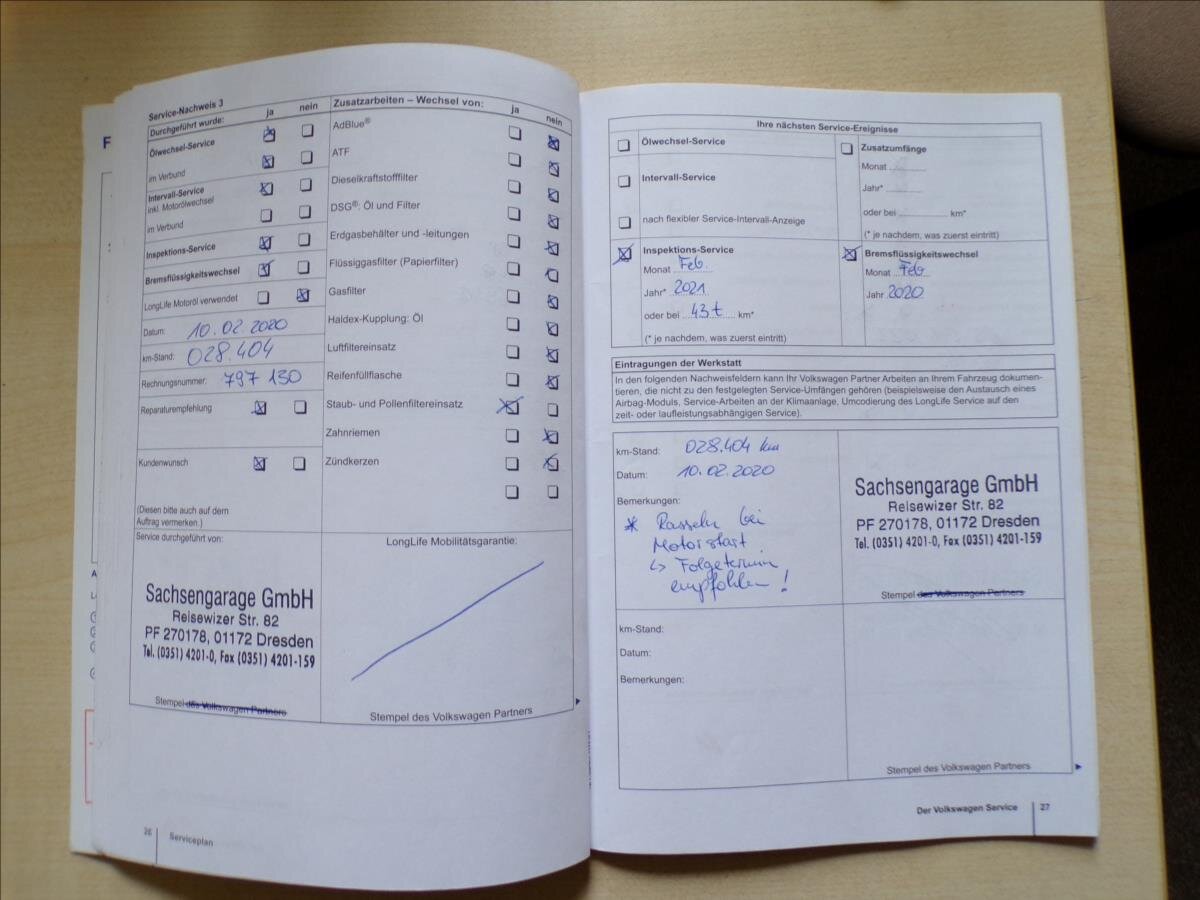 Service-Nachweis 3
ja nein
Durchgeführt wurde:
Ölwechsel-Service
im Verbund
Intervall-Service
inkl. Motorölwechsel
im Verbund
Inspektions-Service
Bremsflüssigkeitswechsel
LongLife Motoröl verwendet
Datum: 10.02.2020
km-Stand: 028.404
Rechnungsnummer: 797 130
Reparaturempfehlung
Kundenwunsch
(Diesen bitte auch auf dem
Auftrag vermerken.)
Service durchgeführt von:
Sachsengarage GmbH
Reisewizer Str. 82
PF 270178, 01172 Dresden
Tel. (0351) 4201-0, Fax (0351) 4201-159
Stempel des Volkswagen Partners
Zusatzarbeiten – Wechsel von:
ja nein
AdBlue®
ATF
Dieselkraftstofffilter
DSG®: Öl und Filter
Erdgasbehälter und -leitungen
Flüssiggasfilter (Papierfilter)
Gasfilter
Haldex-Kupplung: Öl
Luftfiltereinsatz
Reifenfüllflasche
Staub- und Pollenfiltereinsatz
Zahnriemen
Zündkerzen
LongLife Mobilitätsgarantie:
Stempel des Volkswagen Partners
26 Serviceplan
F
Ihre nächsten Service-Ereignisse
Ölwechsel-Service
Intervall-Service
nach flexibler Service-Intervall-Anzeige
Zusatzumfänge
Monat
Jahr*
oder bei km*
(* je nachdem, was zuerst eintritt)
Inspektions-Service
Monat Feb.
Jahr* 2021
oder bei 43t km*
(* je nachdem, was zuerst eintritt)
Bremsflüssigkeitswechsel
Monat Feb
Jahr 2020
Eintragungen der Werkstatt
In den folgenden Nachweisfeldern kann Ihr Volkswagen Partner Arbeiten an Ihrem Fahrzeug dokumen-
tieren, die nicht zu den festgelegten Service-Umfängen gehören (beispielsweise den Austausch eines
Airbag-Moduls, Service-Arbeiten an der Klimaanlage, Umcodierung des LongLife Service auf den
zeit- oder laufleistungsabhängigen Service).
km-Stand: 028.404 km
Datum: 10.02.2020
Bemerkungen:
* Rasseln bei
Motorstart
↳ Folgetermin
empfohlen !
Sachsengarage GmbH
Reisewizer Str. 82
PF 270178, 01172 Dresden
Tel. (0351) 4201-0, Fax (0351) 4201-159
Stempel des Volkswagen Partners
km-Stand:
Datum:
Bemerkungen:
Stempel des Volkswagen Partners
Der Volkswagen Service 27